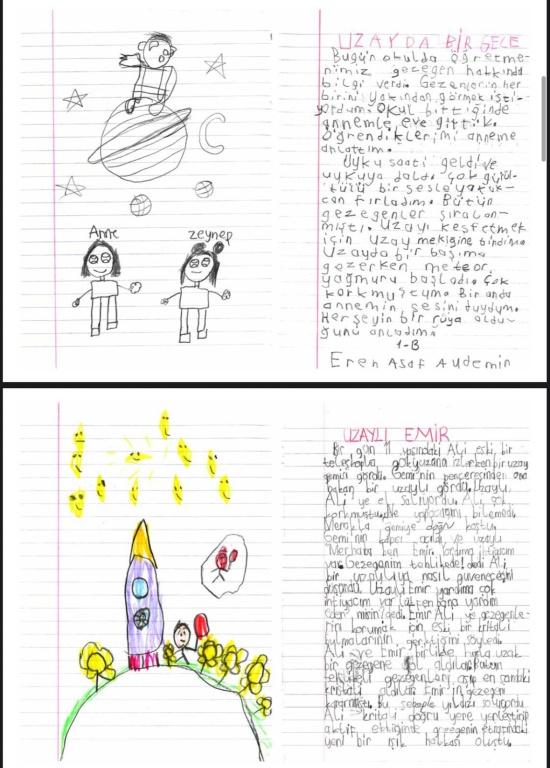 Anne
zeynep
UZAYDA BİR GECE
Bugün okulda öğretme-
nimiz gezegen hakkında
bilgi verdi. Gezenlerin her
birini yakından görmek isti-
yordum. Okul bittiğinde
annemle eve gittik.
Öğrendiklerimi anneme
anlattım.
Uyku saati geldi ve
uykuya daldı. Çok gürül-
tülü bir sesle yatak-
tan fırladım. Bütün
gezegenler sıralan-
mıştı. Uzayı keşfetmek
için uzay mekiğine bindim.
Uzayda bir başıma
gezerken meteor
yağmuru başladı. Çok
korkmuştum. Bir anda
annemin sesini duydum.
Herşeyin bir rüya oldu-
ğunu anladım.
1-B
Eren Asaf Aydemir
UZAYLI EMİR
Bir gün 11 yaşındaki Ali eski bir
teleskopla gökyüzünü izlerken bir uzay
gemisi gördü. Gemi'nin penceresinden ona
bakan bir uzaylı gördü. Uzaylı
Ali'ye el sallıyordu. Ali çok
korkmuştu. Ne yapacağını bilemedi.
Merakla gemiye doğru koştu.
Gemi'nin kapısı açıldı ve uzaylı
"Merhaba ben Emir. Yardıma ihtiyacım
var. Gezegenim tahlikede! dedi. Ali
bir uzaylıya nasıl güveneceğini
düşündü. Uzaylı Emir yardıma çok
ihtiyacım var lütfen bana yardım
eder misin! dedi. Emir Ali'ye gezegenle-
rini korumak için eski bir kristali
bulmalarının gerektiğini söyledi.
Ali ve Emir birlikte uzak
bir gezegene yol aldılar.
tehlikeli gezegenleri aşıp en sondaki
kristali aldılar. Emir'in gezegeni
kararmıştı. Bu sebeple yıldızı soluyordu.
Ali kritali doğru yere yerleştirip
aktif ettiğinde gezegenin etrafındaki
yeni bir ışık halkası oluştu.